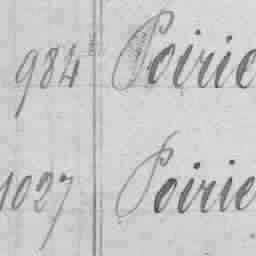 984 Poirie
1027 Poirie